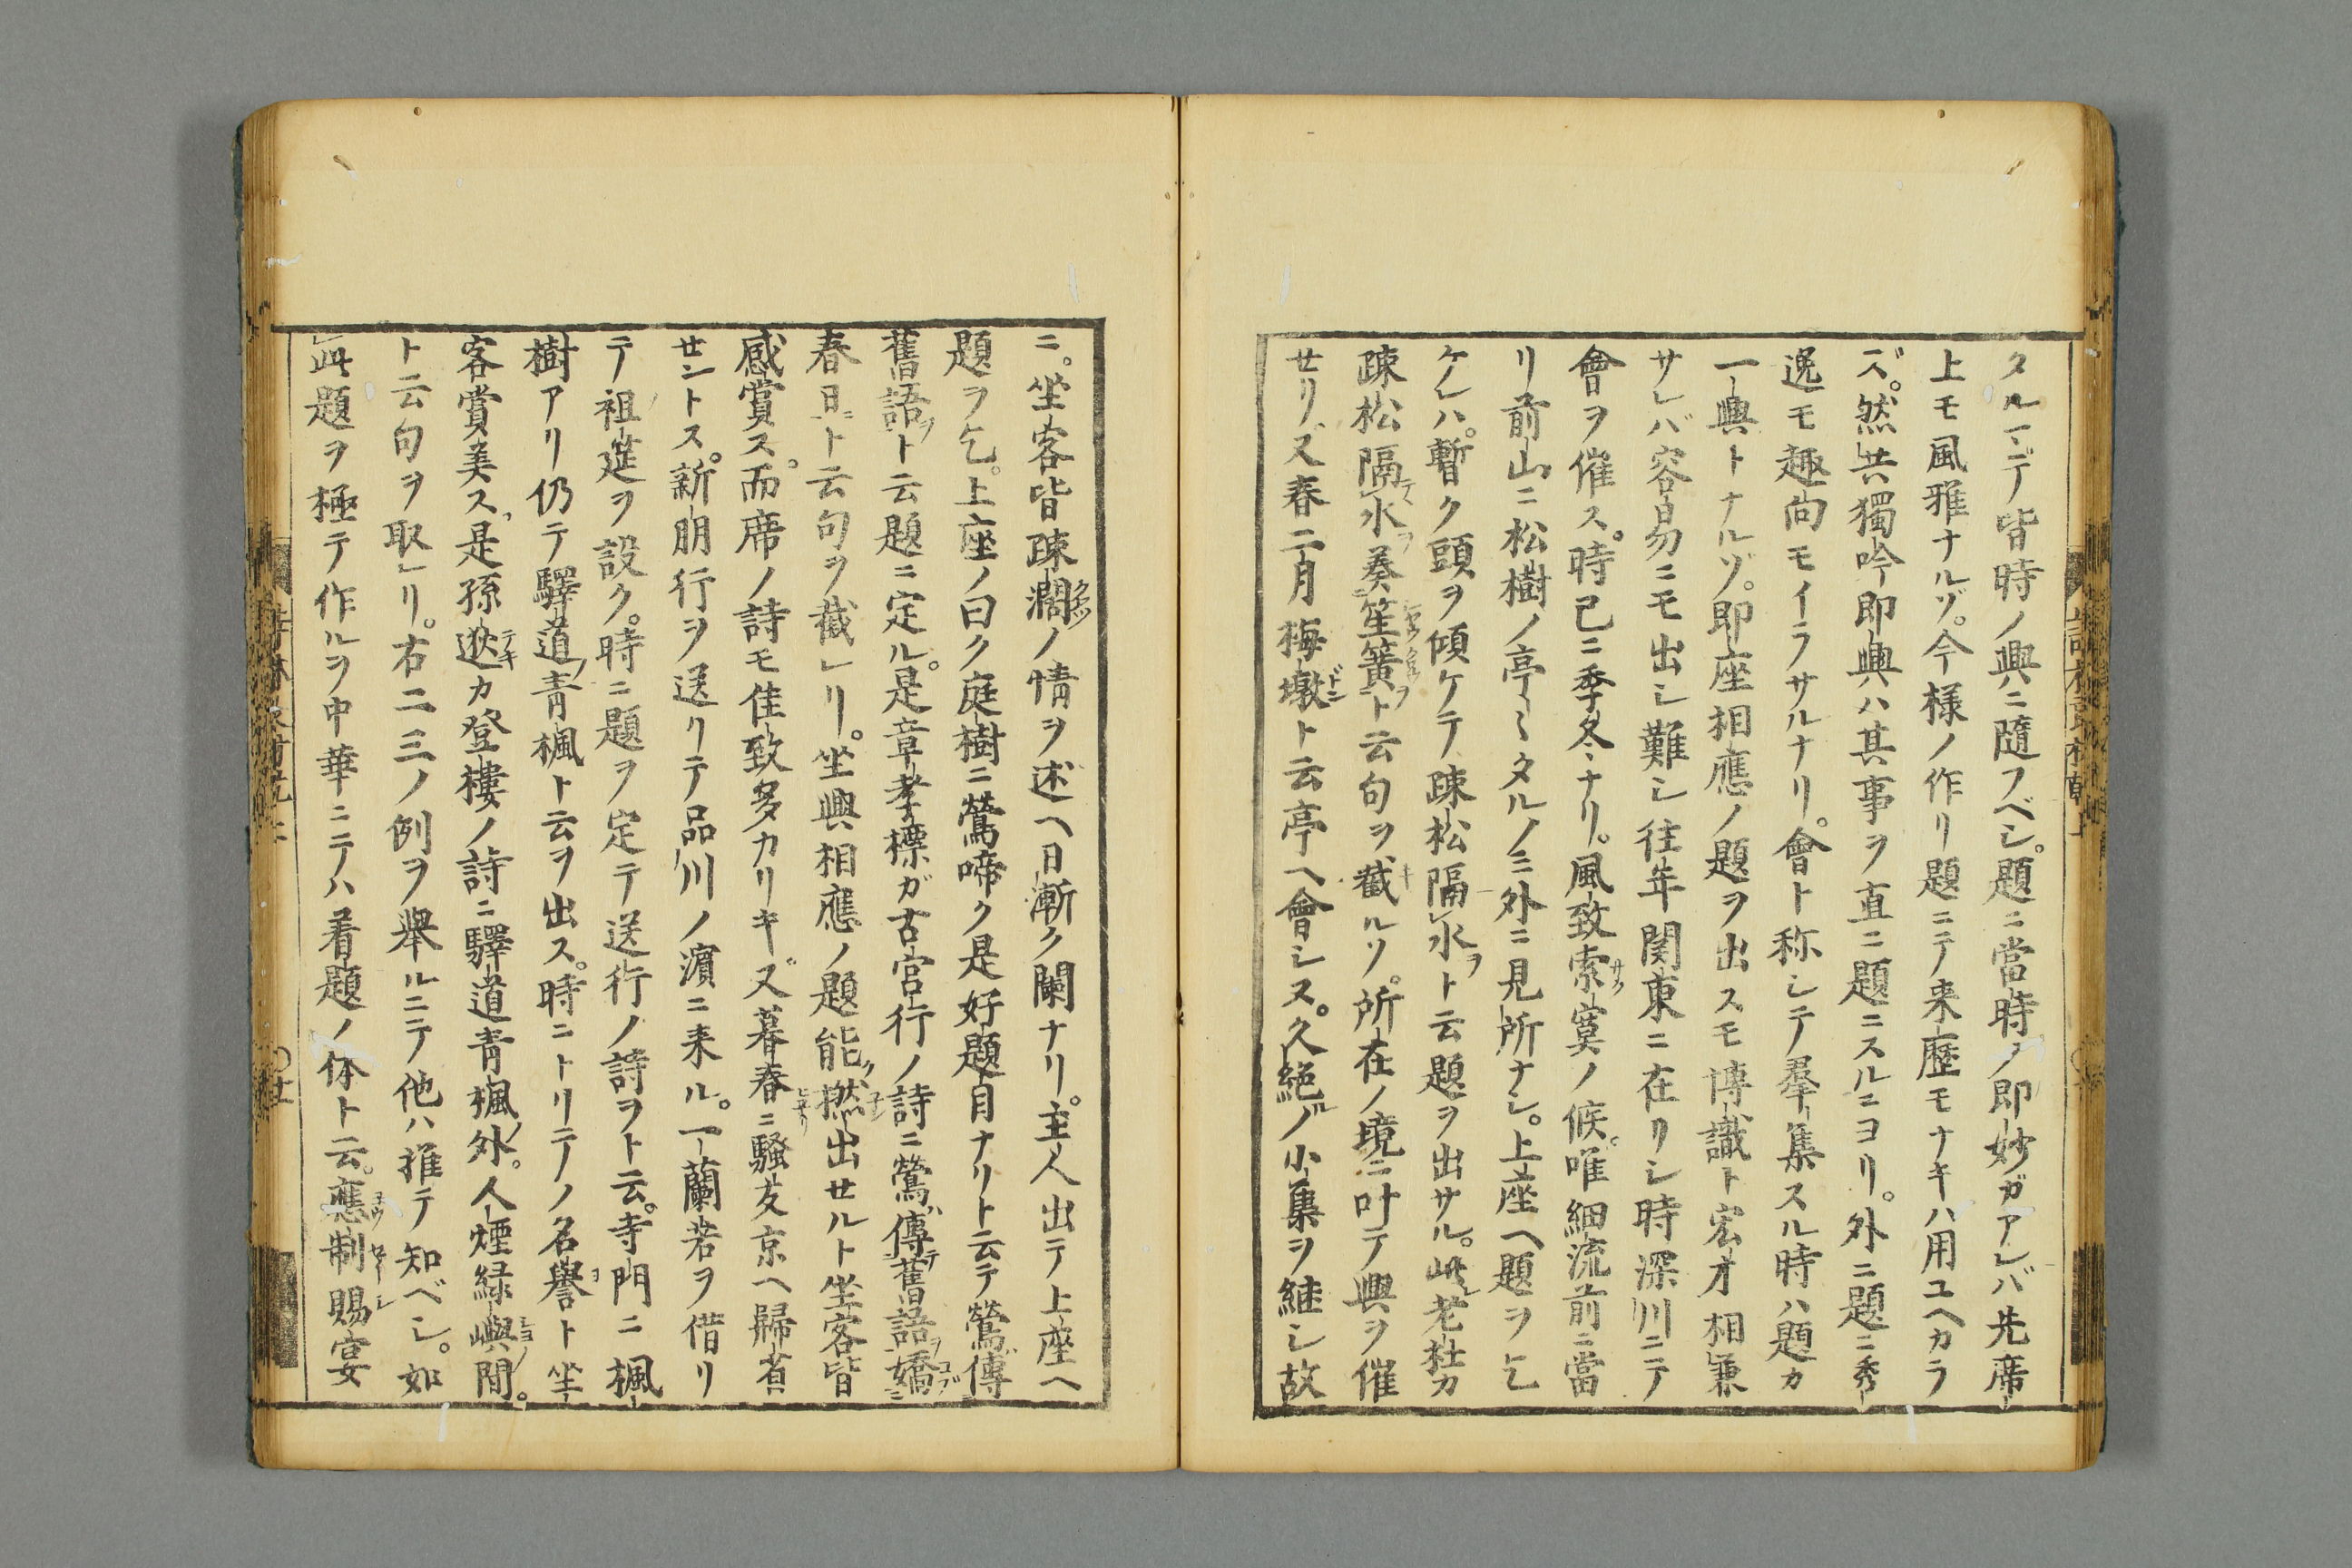 タル┐ニテ皆時ノ興ニ隨フベシ。題ニ當時ノ即妙ガアレバ先席
上モ風雅ナルゾ。今様ノ作リ題ニテ来歴モナキハ用ユヘカラ
ズ。然共獨吟即興ハ其事ヲ直ニ題ニスルニヨリ。外ニ題ニ秀
逸モ趣向モイラサルナリ。會ト称シテ羣集スル時ハ題カ
一興トナルゾ。即座相應ノ題ヲ出スモ博識ト宏才相兼
サレバ容易ニモ出シ難シ往年関東ニ在リシ時深川ニテ
會ヲ催ス。時已ニ季冬ナリ。風致索寞ノ候。唯細流前ニ當
リ前山ニ松樹ノ亭〻タルノミ外ニ見所ナシ。上座ヘ題ヲ乞
ケレハ。暫ク頭ヲ傾ケテ疎松隔水ヲト云題ヲ出サル。此レ老杜カ
疎松隔テヽ水ヲ奏ス笙簧ヲト云句ヲ截キルソ。所在ノ境ニ叶テ興ヲ催
セリ。又春二月梅墩ドント云亭ヘ會シス。久絶ノ小集ヲ継シ故
ニ。坐客皆疎濶ノ情ヲ述ヘ日漸ク闌ナリ。主人出テ上座ヘ
題ヲ乞。上座ノ曰ク庭樹ニ鶯啼ク是好題目ナリト云テ鶯傳
舊語ヲト云題ニ定ル。是章孝標ガ古宮行ノ詩ニ鶯傳テ舊語ヲ嬌コブ
春日ニト云句ヲ截レリ。坐興相應ノ題能ク撚出セルト坐客皆
感賞ス。而席ノ詩モ佳致多カリキ。又暮春ニ騒友京ヘ歸省
セントス。新朋行ヲ送リテ品川ノ濵ニ来ル。一蘭若ヲ借リ
テ祖筵ヲ設ク。時ニ題ヲ定テ送行ノ詩ヲト云。寺門ニ楓
樹アリ仍テ驛道ノ青楓ト云ヲ出ス。時ニトリテノ名譽ヨト坐
客賞美ス。是孫逖テキカ登樓ノ詩ニ驛道青楓ノ外。人煙緑嶼ショノ間。
ト云句ヲ取レリ。右二三ノ例ヲ舉ルニテ他ハ推テ知ベシ。如
此題ヲ極テ作ルヲ中華ニテハ着題ノ体ト云。應制賜宴